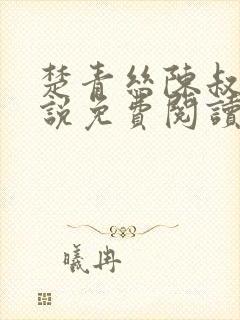 楚青絲陳叔
說免費閱讀
曦冉